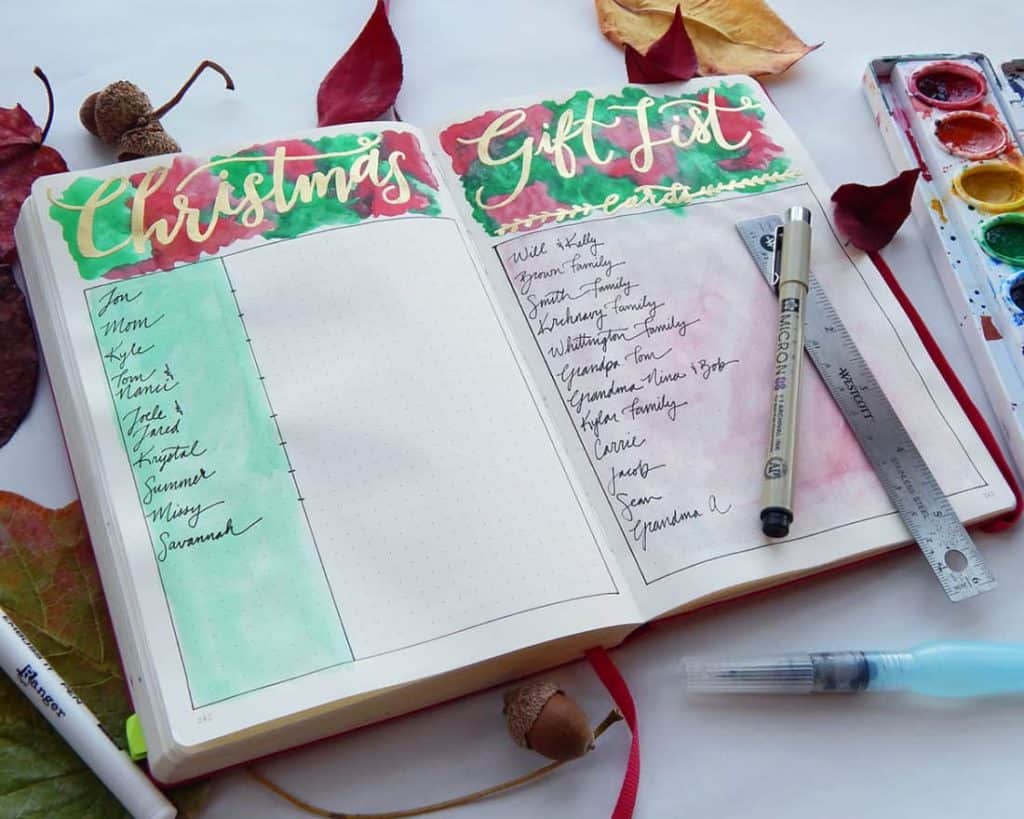 Christmas
Jon
Mom
Kyle
Tom &
Nanci
Joele &
Jared
Krystal
Summer
Missy
Savannah
Gift List
cards
Will & Kally
Brown Family
Smith Family
Krchnavy Family
Whittington Family
Grandpa Tom
Grandma Nina & Bob
Kylar Family
Carrie
Jacob
Sean
Grandma A
MICRON 08
ARCHIVAL INK
WESTCOTT
STAINLESS STEEL
Ranger